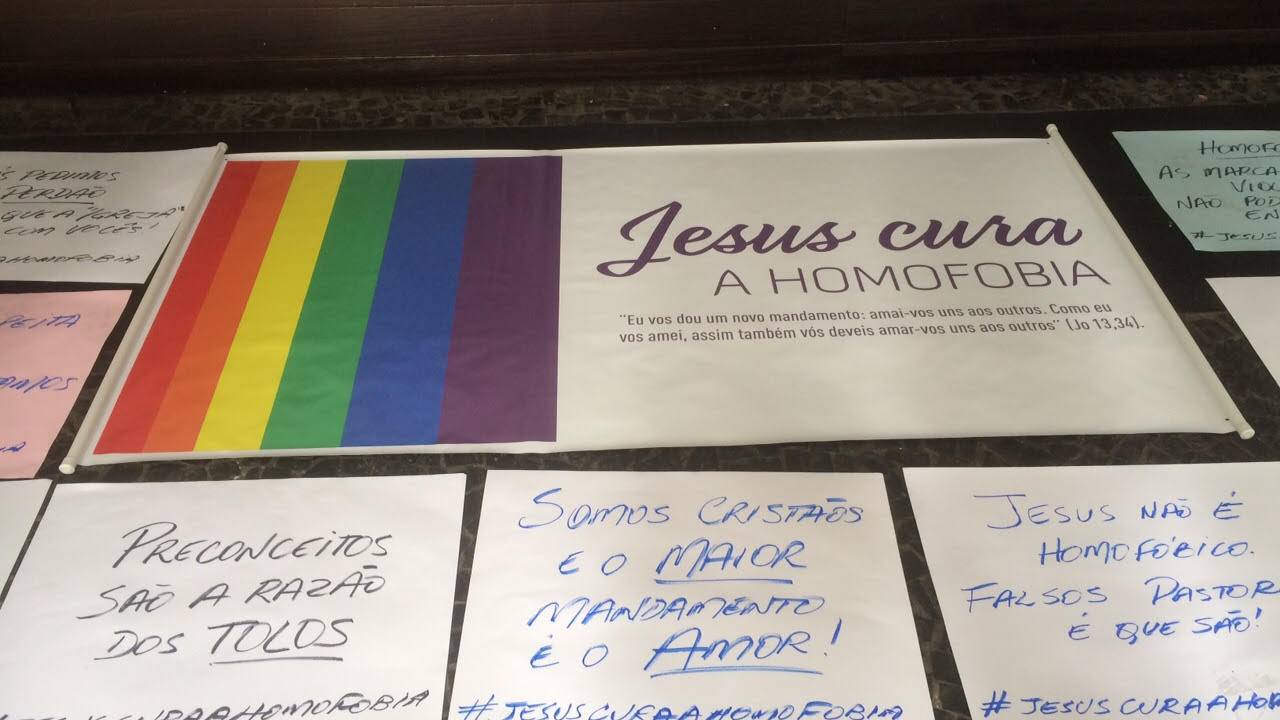 PEDIMOS
PERDÃO
QUE A "IGREJA"
COM VOCÊS!
AHOMOFOBIA
PEITA
Jesus cura
A HOMOFOBIA
"Eu vos dou um novo mandamento: amai-vos uns aos outros. Como eu
vos amei, assim também vós deveis amar-vos uns aos outros" (Jo 13,34).
HOMOFO
AS MARCA
NÃO POD
EN
#JESUS
PRECONCEITOS
SÃO A RAZÃO
DOS TOLOS
CURAAHOMOFOBIA
SOMOS CRISTÃOS
E O MAIOR
MANDAMENTO
É O AMOR!
#JESUSCURAAHOMOFOBIA
JESUS NÃO É
HOMOFÓBICO.
FALSOS PASTOR
É QUE SÃO!
#JESUSCURAAHOM